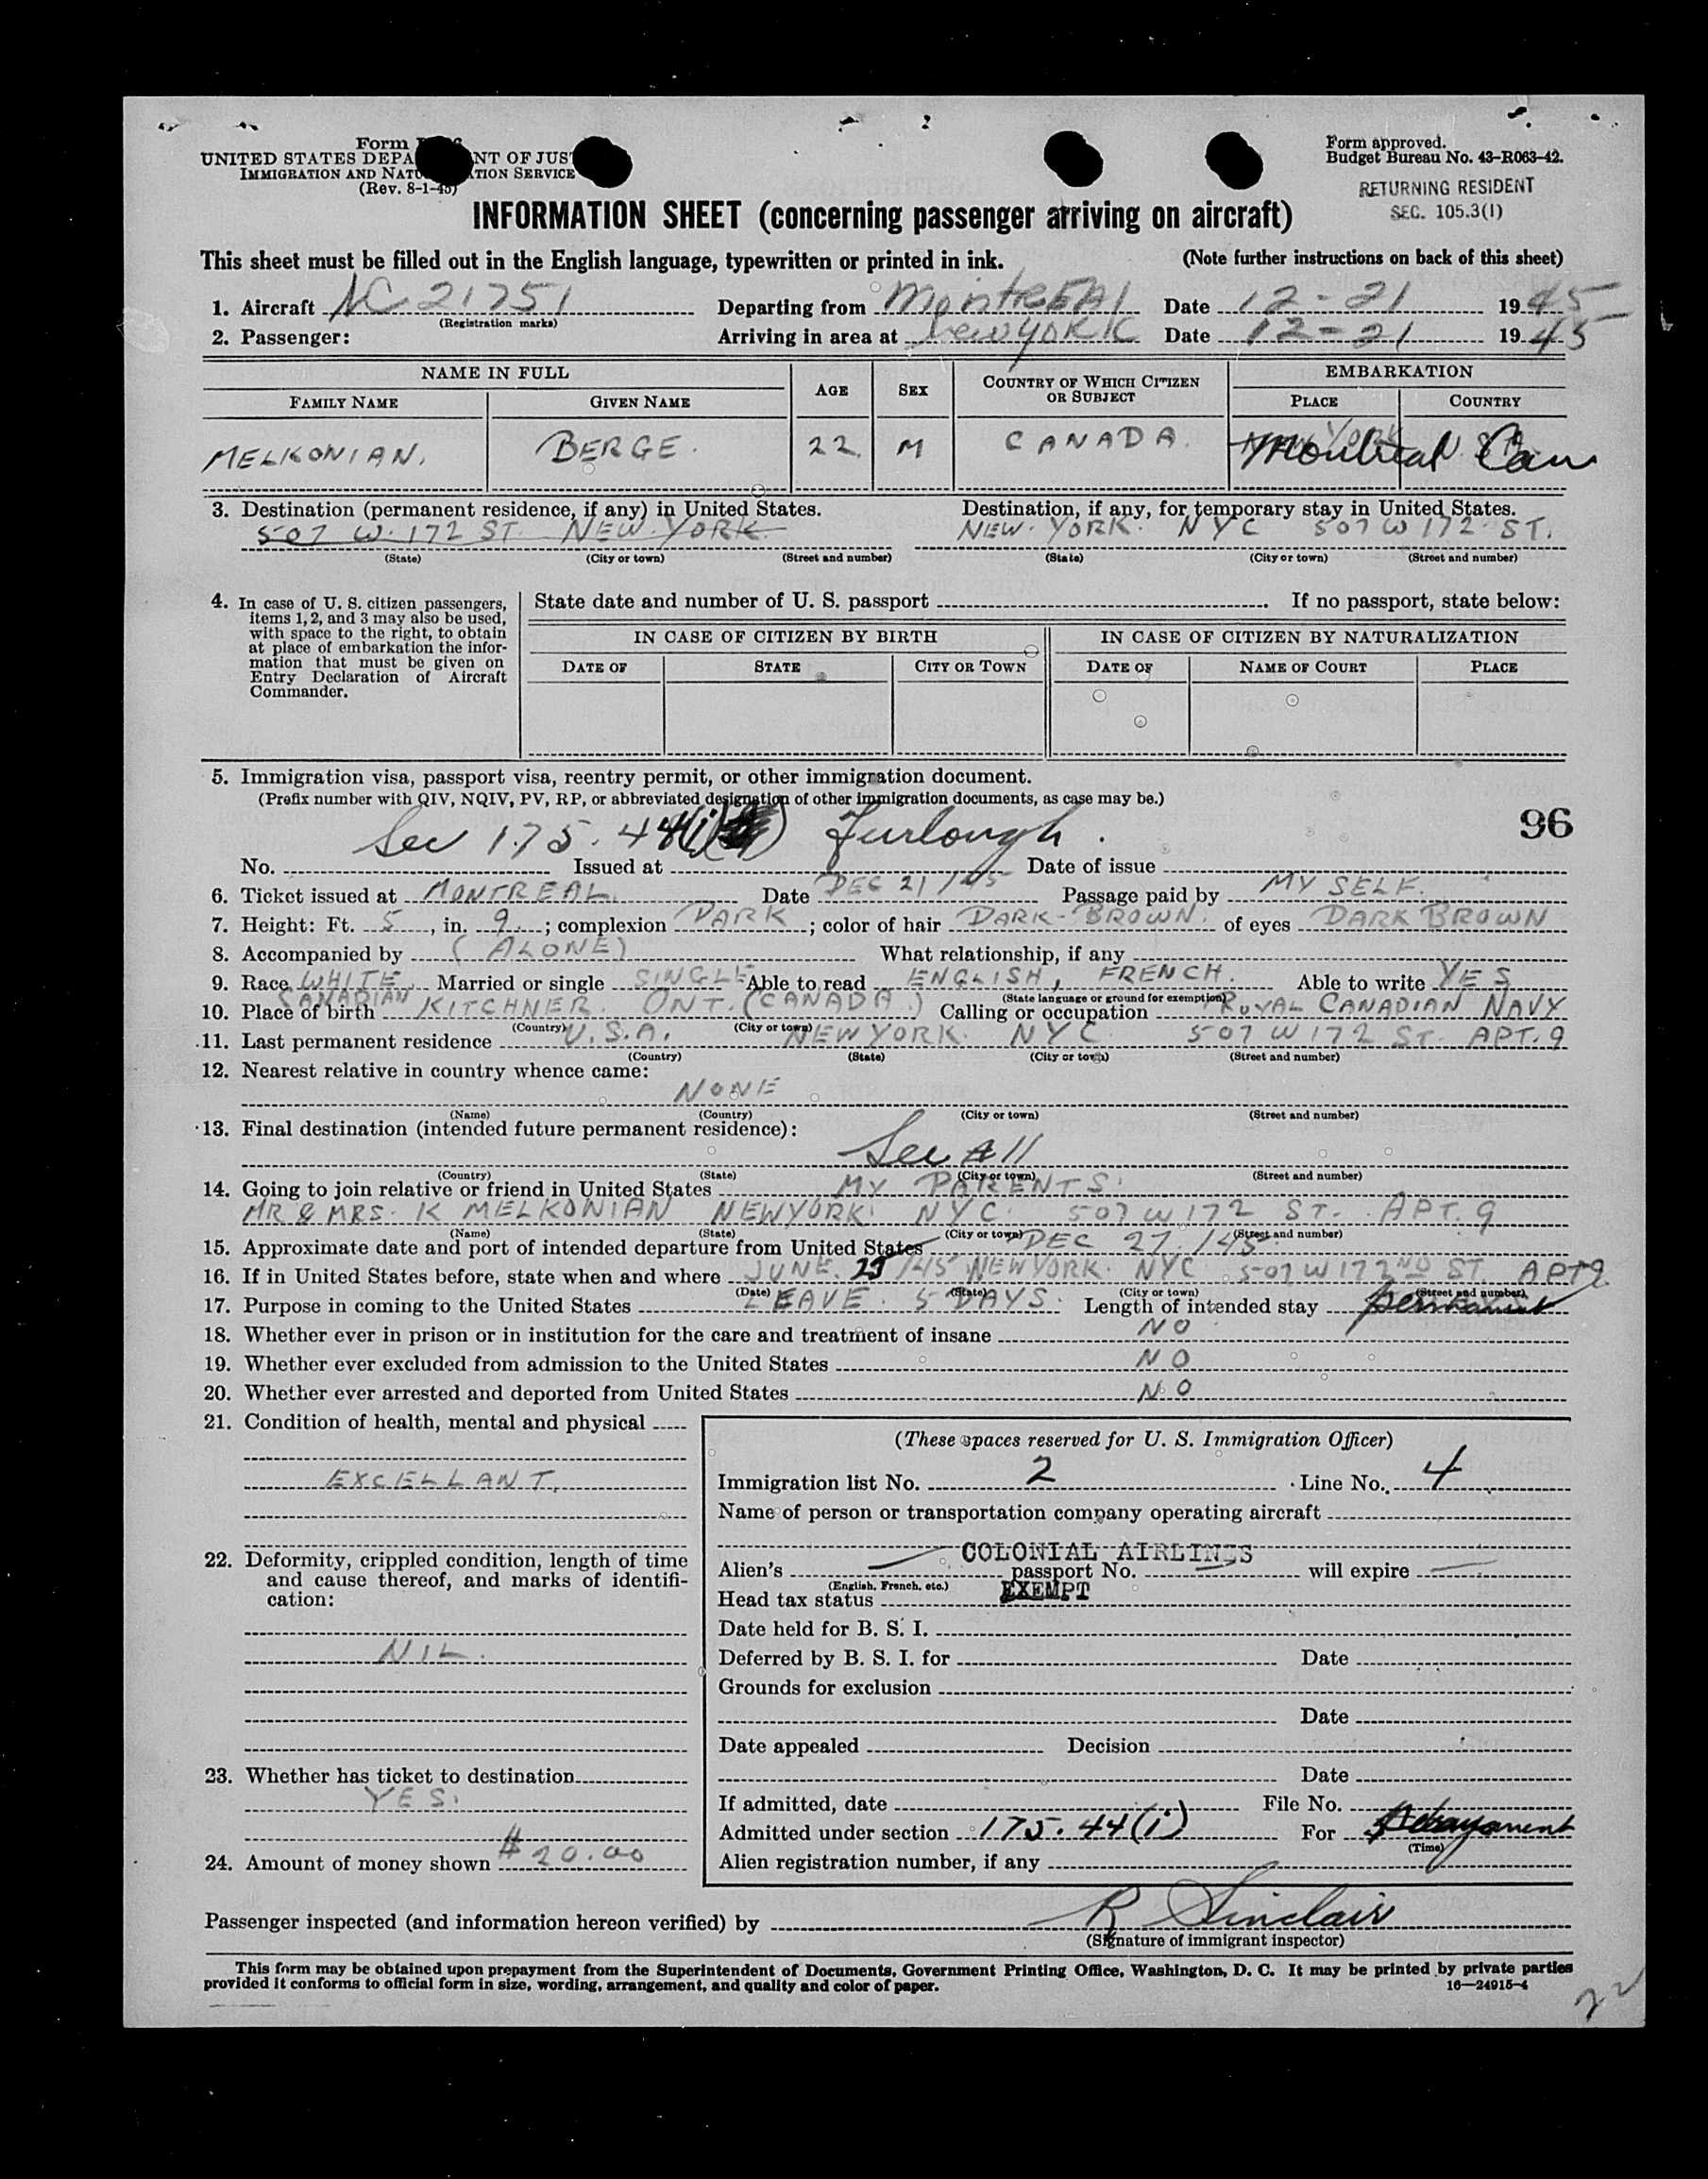 Form
UNITED STATES DEPA NT OF JUS
IMMIGRATION AND NATU TION SERVICE
(Rev. 8-1-45)
Form approved.
Budget Bureau No. 43-R063-42.
RETURNING RESIDENT
SEC. 105.3(1)
INFORMATION SHEET (concerning passenger arriving on aircraft)
This sheet must be filled out in the English language, typewritten or printed in ink. (Note further instructions on back of this sheet)
1. Aircraft NC 21751 Departing from MontREAl Date 12-21 1945
(Registration marks)
2. Passenger: Arriving in area at New YORK Date 12-21 1945
NAME IN FULL AGE SEX COUNTRY OF WHICH CITIZEN OR SUBJECT EMBARKATION
FAMILY NAME GIVEN NAME PLACE COUNTRY
MELKONIAN. BERGE. 22. M CANADA. Montreal Can
3. Destination (permanent residence, if any) in United States. Destination, if any, for temporary stay in United States.
507 W. 172 ST. NEW YORK. NEW. YORK. NYC 507 W 172 ST.
(State) (City or town) (Street and number) (State) (City or town) (Street and number)
4. In case of U. S. citizen passengers, items 1, 2, and 3 may also be used, with space to the right, to obtain at place of embarkation the information that must be given on Entry Declaration of Aircraft Commander.
State date and number of U. S. passport . If no passport, state below:
IN CASE OF CITIZEN BY BIRTH IN CASE OF CITIZEN BY NATURALIZATION
DATE OF STATE CITY OR TOWN DATE OF NAME OF COURT PLACE
5. Immigration visa, passport visa, reentry permit, or other immigration document.
(Prefix number with QIV, NQIV, PV, RP, or abbreviated designation of other immigration documents, as case may be.)
96
Sec 175.44(i) Furlough.
No. Issued at Date of issue
6. Ticket issued at MONTREAL. Date DEC 21/45 Passage paid by MY SELF.
7. Height: Ft. 5, in. 9.; complexion DARK; color of hair DARK-BROWN. of eyes DARK BROWN
8. Accompanied by (ALONE) What relationship, if any
9. Race WHITE. Married or single SINGLE Able to read ENGLISH, FRENCH. Able to write YES
CANADIAN (State language or ground for exemption)
10. Place of birth KITCHNER. ONT. (CANADA) Calling or occupation ROYAL CANADIAN NAVY
(Country) (City or town)
11. Last permanent residence U.S.A. NEW YORK. NYC 507 W 172 ST. APT. 9
(Country) (State) (City or town) (Street and number)
12. Nearest relative in country whence came:
NONE
(Name) (Country) (City or town) (Street and number)
13. Final destination (intended future permanent residence):
See 11
(Country) (State) (City or town) (Street and number)
14. Going to join relative or friend in United States MY PARENTS.
MR & MRS. K MELKONIAN NEWYORK. NYC. 507 W 172 ST. APT. 9
(Name) (State) (City or town) (Street and number)
15. Approximate date and port of intended departure from United States DEC 27./45.
16. If in United States before, state when and where JUNE. 25/45 NEW YORK. NYC 507 W 172ND ST. APT 9.
(Date) (State) (City or town) (Street and number)
17. Purpose in coming to the United States LEAVE. 5 DAYS. Length of intended stay permanent
18. Whether ever in prison or in institution for the care and treatment of insane NO
19. Whether ever excluded from admission to the United States NO
20. Whether ever arrested and deported from United States NO
21. Condition of health, mental and physical
EXCELLANT.
22. Deformity, crippled condition, length of time and cause thereof, and marks of identification:
NIL.
23. Whether has ticket to destination
YES.
24. Amount of money shown $20.00
(These spaces reserved for U. S. Immigration Officer)
Immigration list No. 2 Line No. 4
Name of person or transportation company operating aircraft
COLONIAL AIRLINES
Alien's passport No. will expire
(English, French, etc.)
Head tax status EXEMPT
Date held for B. S. I.
Deferred by B. S. I. for Date
Grounds for exclusion
Date
Date appealed Decision
Date
If admitted, date File No.
Admitted under section 175.44(i) For permanent
(Time)
Alien registration number, if any
Passenger inspected (and information hereon verified) by R Sinclair
(Signature of immigrant inspector)
This form may be obtained upon prepayment from the Superintendent of Documents, Government Printing Office, Washington, D. C. It may be printed by private parties
provided it conforms to official form in size, wording, arrangement, and quality and color of paper. 16—24915-4
22